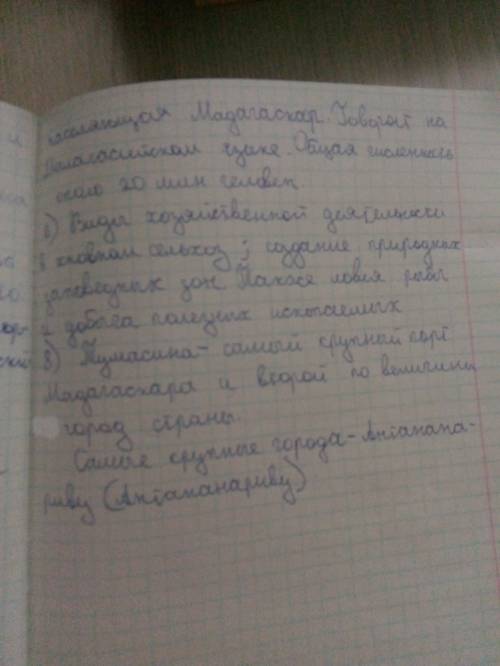 населяющая Мадагаскар. Говорят на
Малагасийском языке. Общая численность
около 20 млн человек.
6) Виды хозяйственной деятельности
в основном сельхоз ; создание природных
заповедных зон Также ловля рыбы
и добыча полезных ископаемых
8) Тумасина - самый крупный порт
Мадагаскара и второй по величины
город страны.
Самые крупные города - Антанана-
риву (Антананариву)